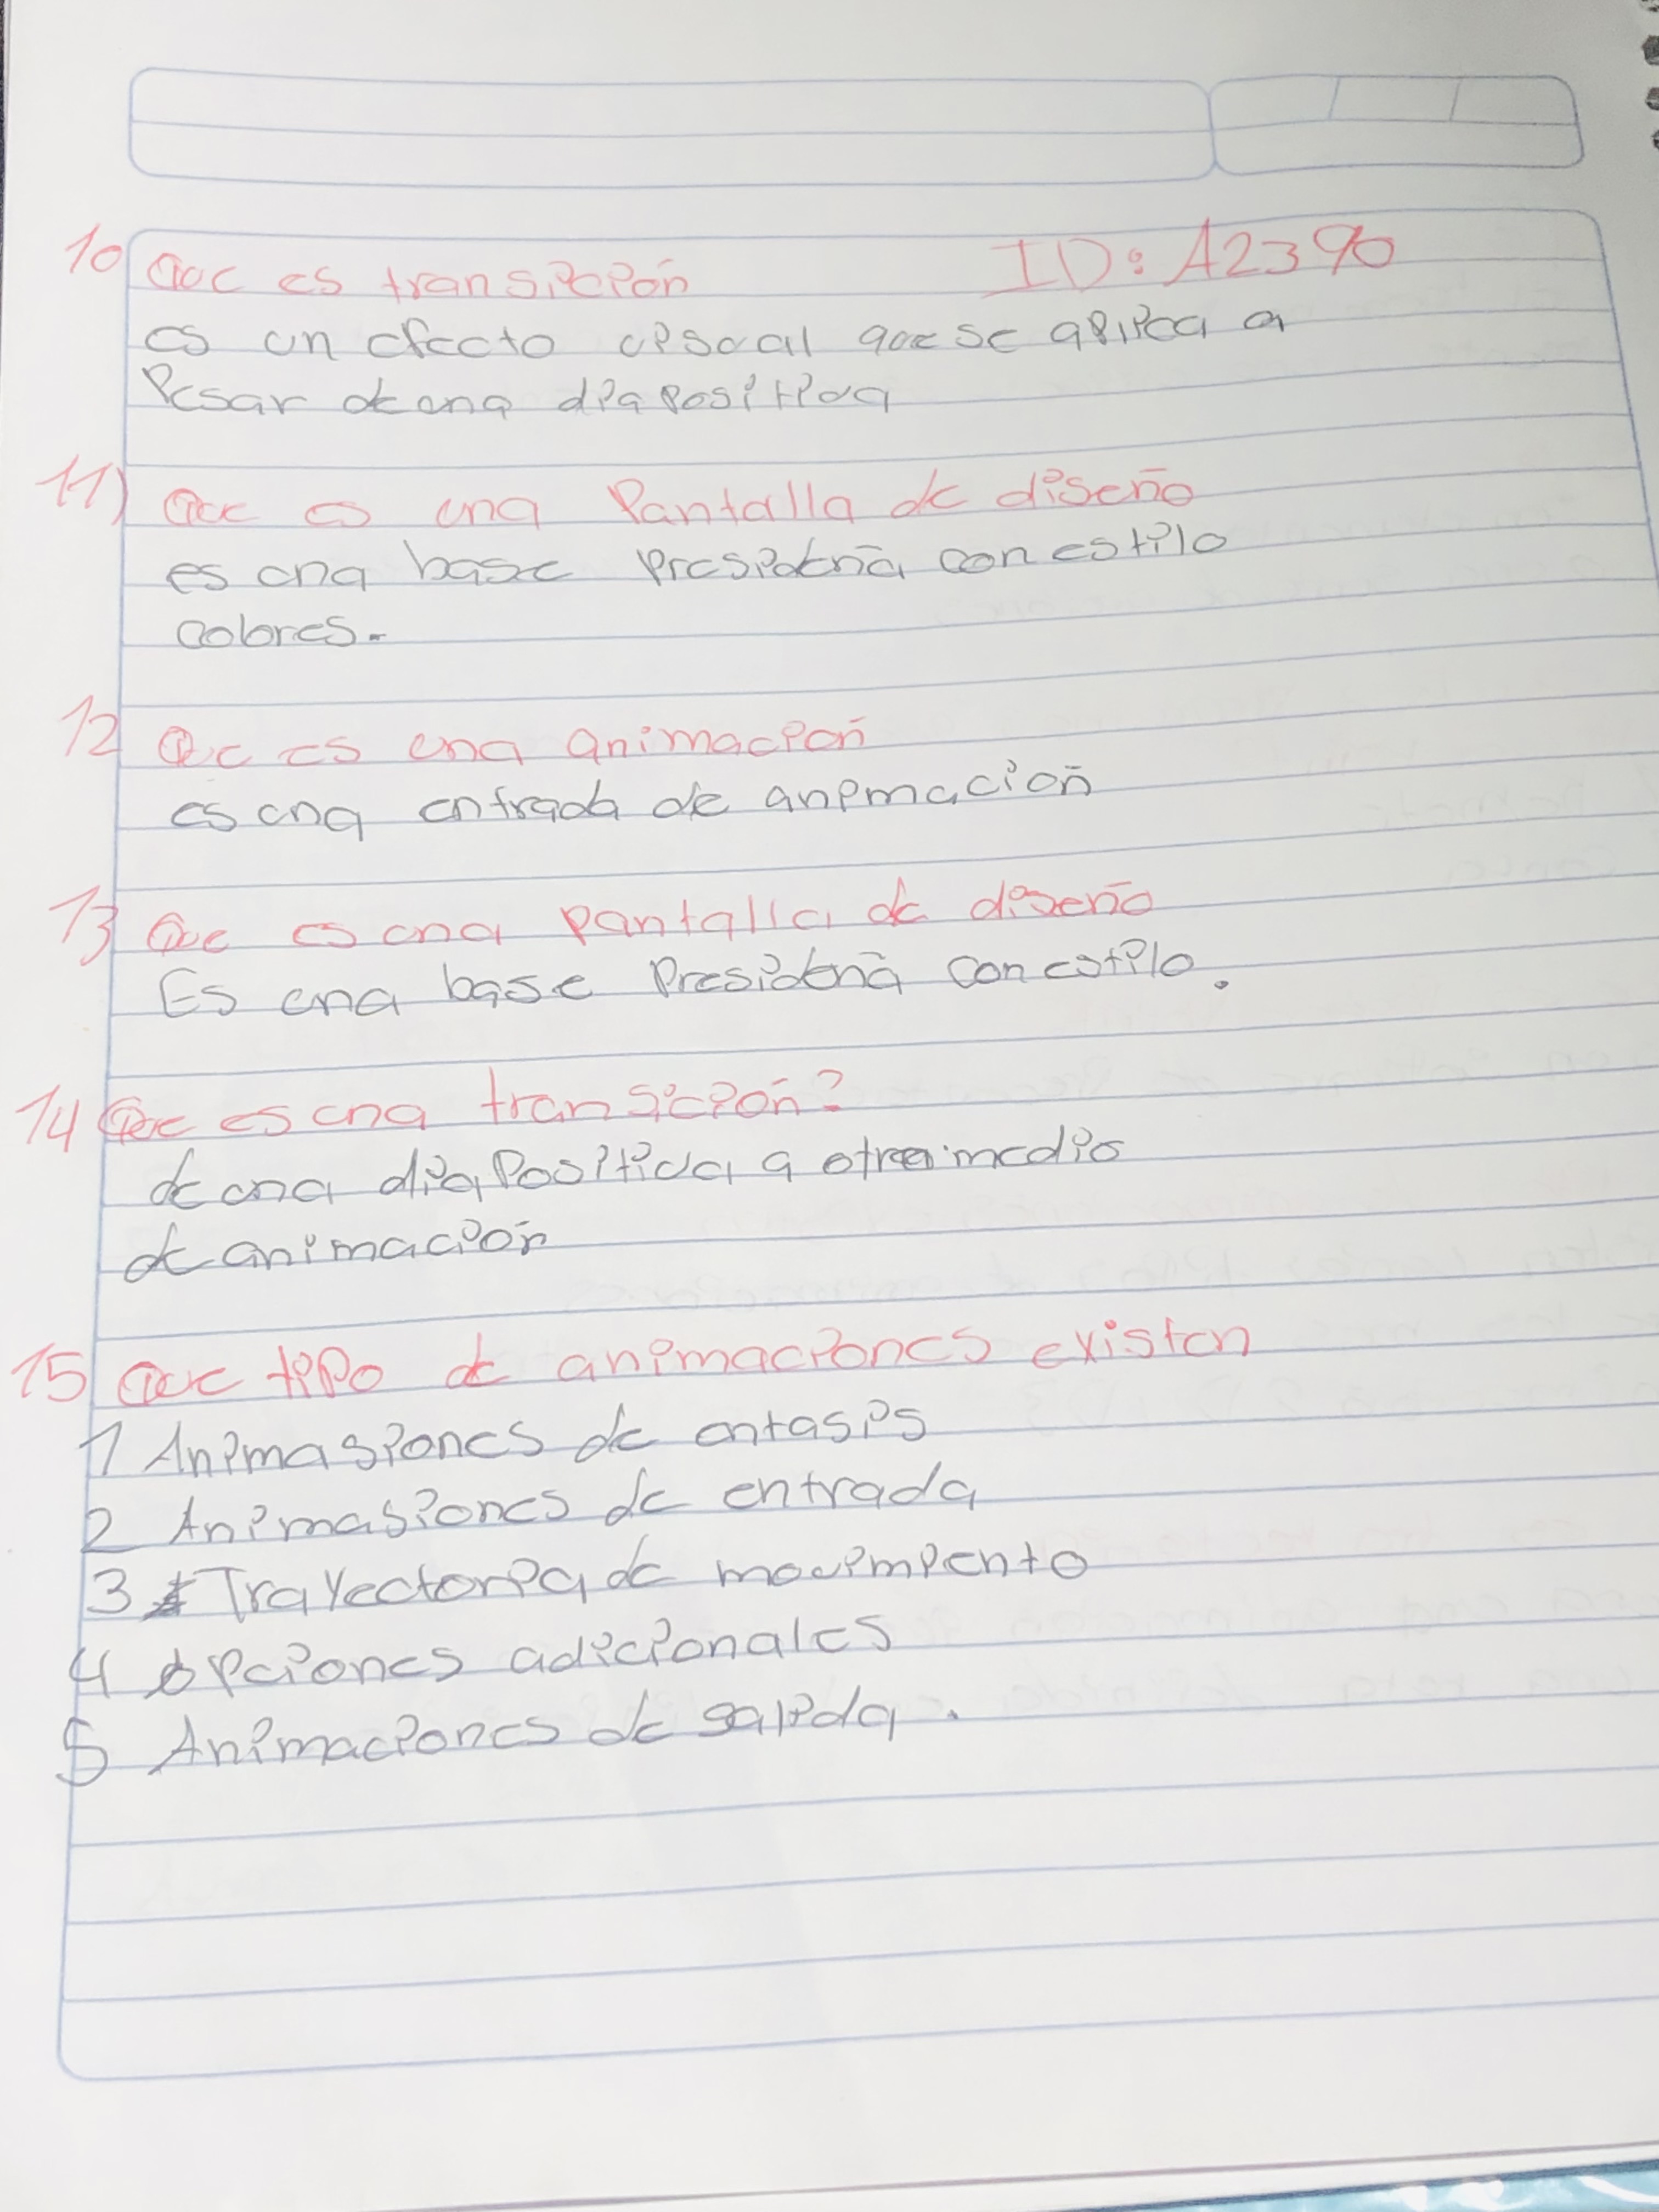 10 Que es transición ID: A2390
es un efecto visual que se aplica a
Pesar de una diapositiva
11) Que es una Pantalla de diseño
es una base Presideña con estilo
colores.
12 Que es una animación
es una entrada de animación
13 Que es una pantalla de diseño
Es una base Presideña con estilo.
14 Que es una transición?
de una diapositiva a otra medio
de animación
15 Que tipo de animaciones existen
1 Animasiones de entasis
2 Animasiones de entrada
3 Trayectoria de movimiento
4 opciones adicionales
5 Animaciones de salida.